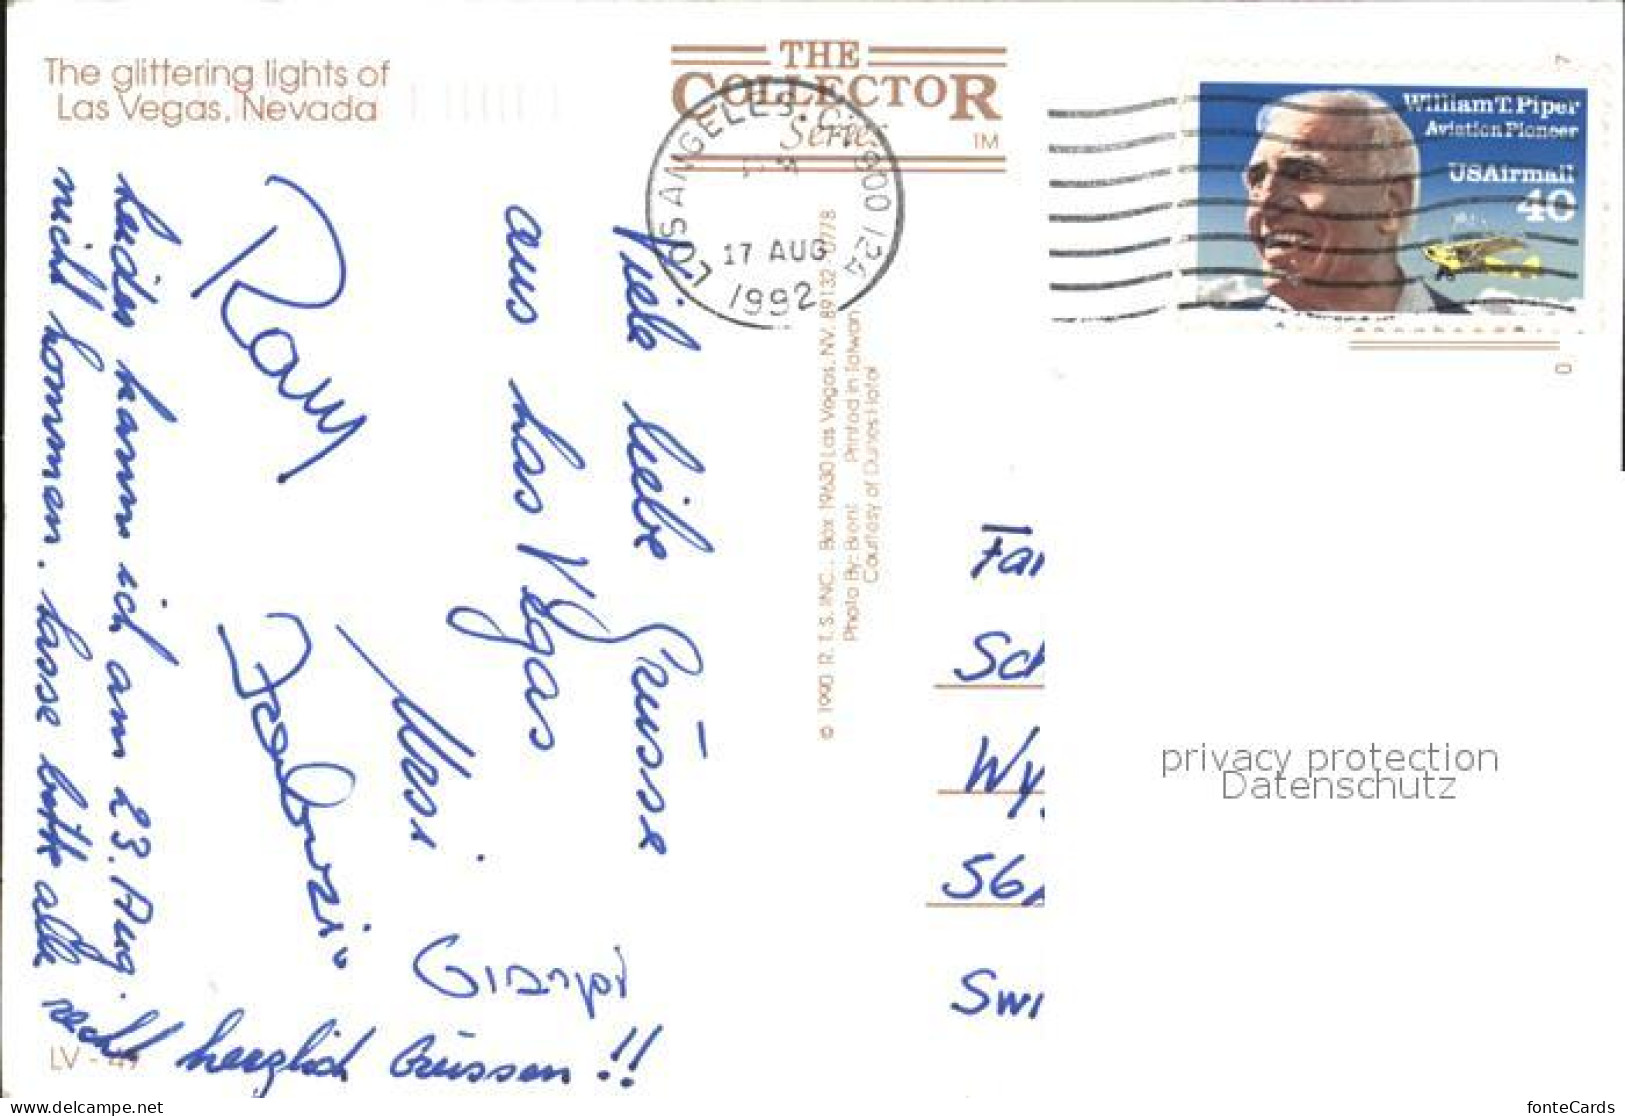 The glittering lights of
Las Vegas, Nevada
THE
COLLECTOR
Series
TM
LOS ANGELES, CA 900
17 AUG
1992
William T. Piper
Aviation Pioneer
USAirmail
40
7
0
© 1990 R. T. S. INC., Box 19630 Las Vegas, NV. 89132 0778
Photo By: Brent Printed in Taiwan
Courtesy of Dunes Hotel
Viele liebe Grüsse
aus Las Vegas
Ursi
Gianpi
Ramy
leider kann ich am 23. Aug.
nicht kommen. Lasse bitte alle
recht herzlich Grüssen !!
Fa
Sc
Wy
56
Swi
privacy protection
Datenschutz
LV - 49
www.delcampe.net
fonteCards